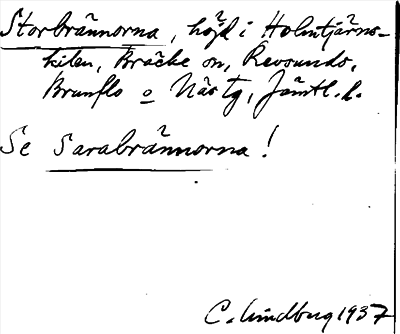 Storbrännorna, höjd i Holmtjärns-
kilen, Bräcke sn, Revsunds,
Brunflo o Näs tg, Jämtl. l.
Se Sarabrännorna!
C. Lindberg 1937